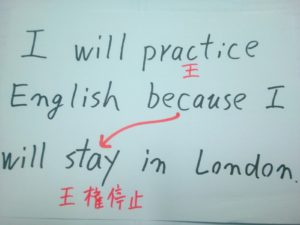 I will practice
王
English because I
will stay in London.
王権停止